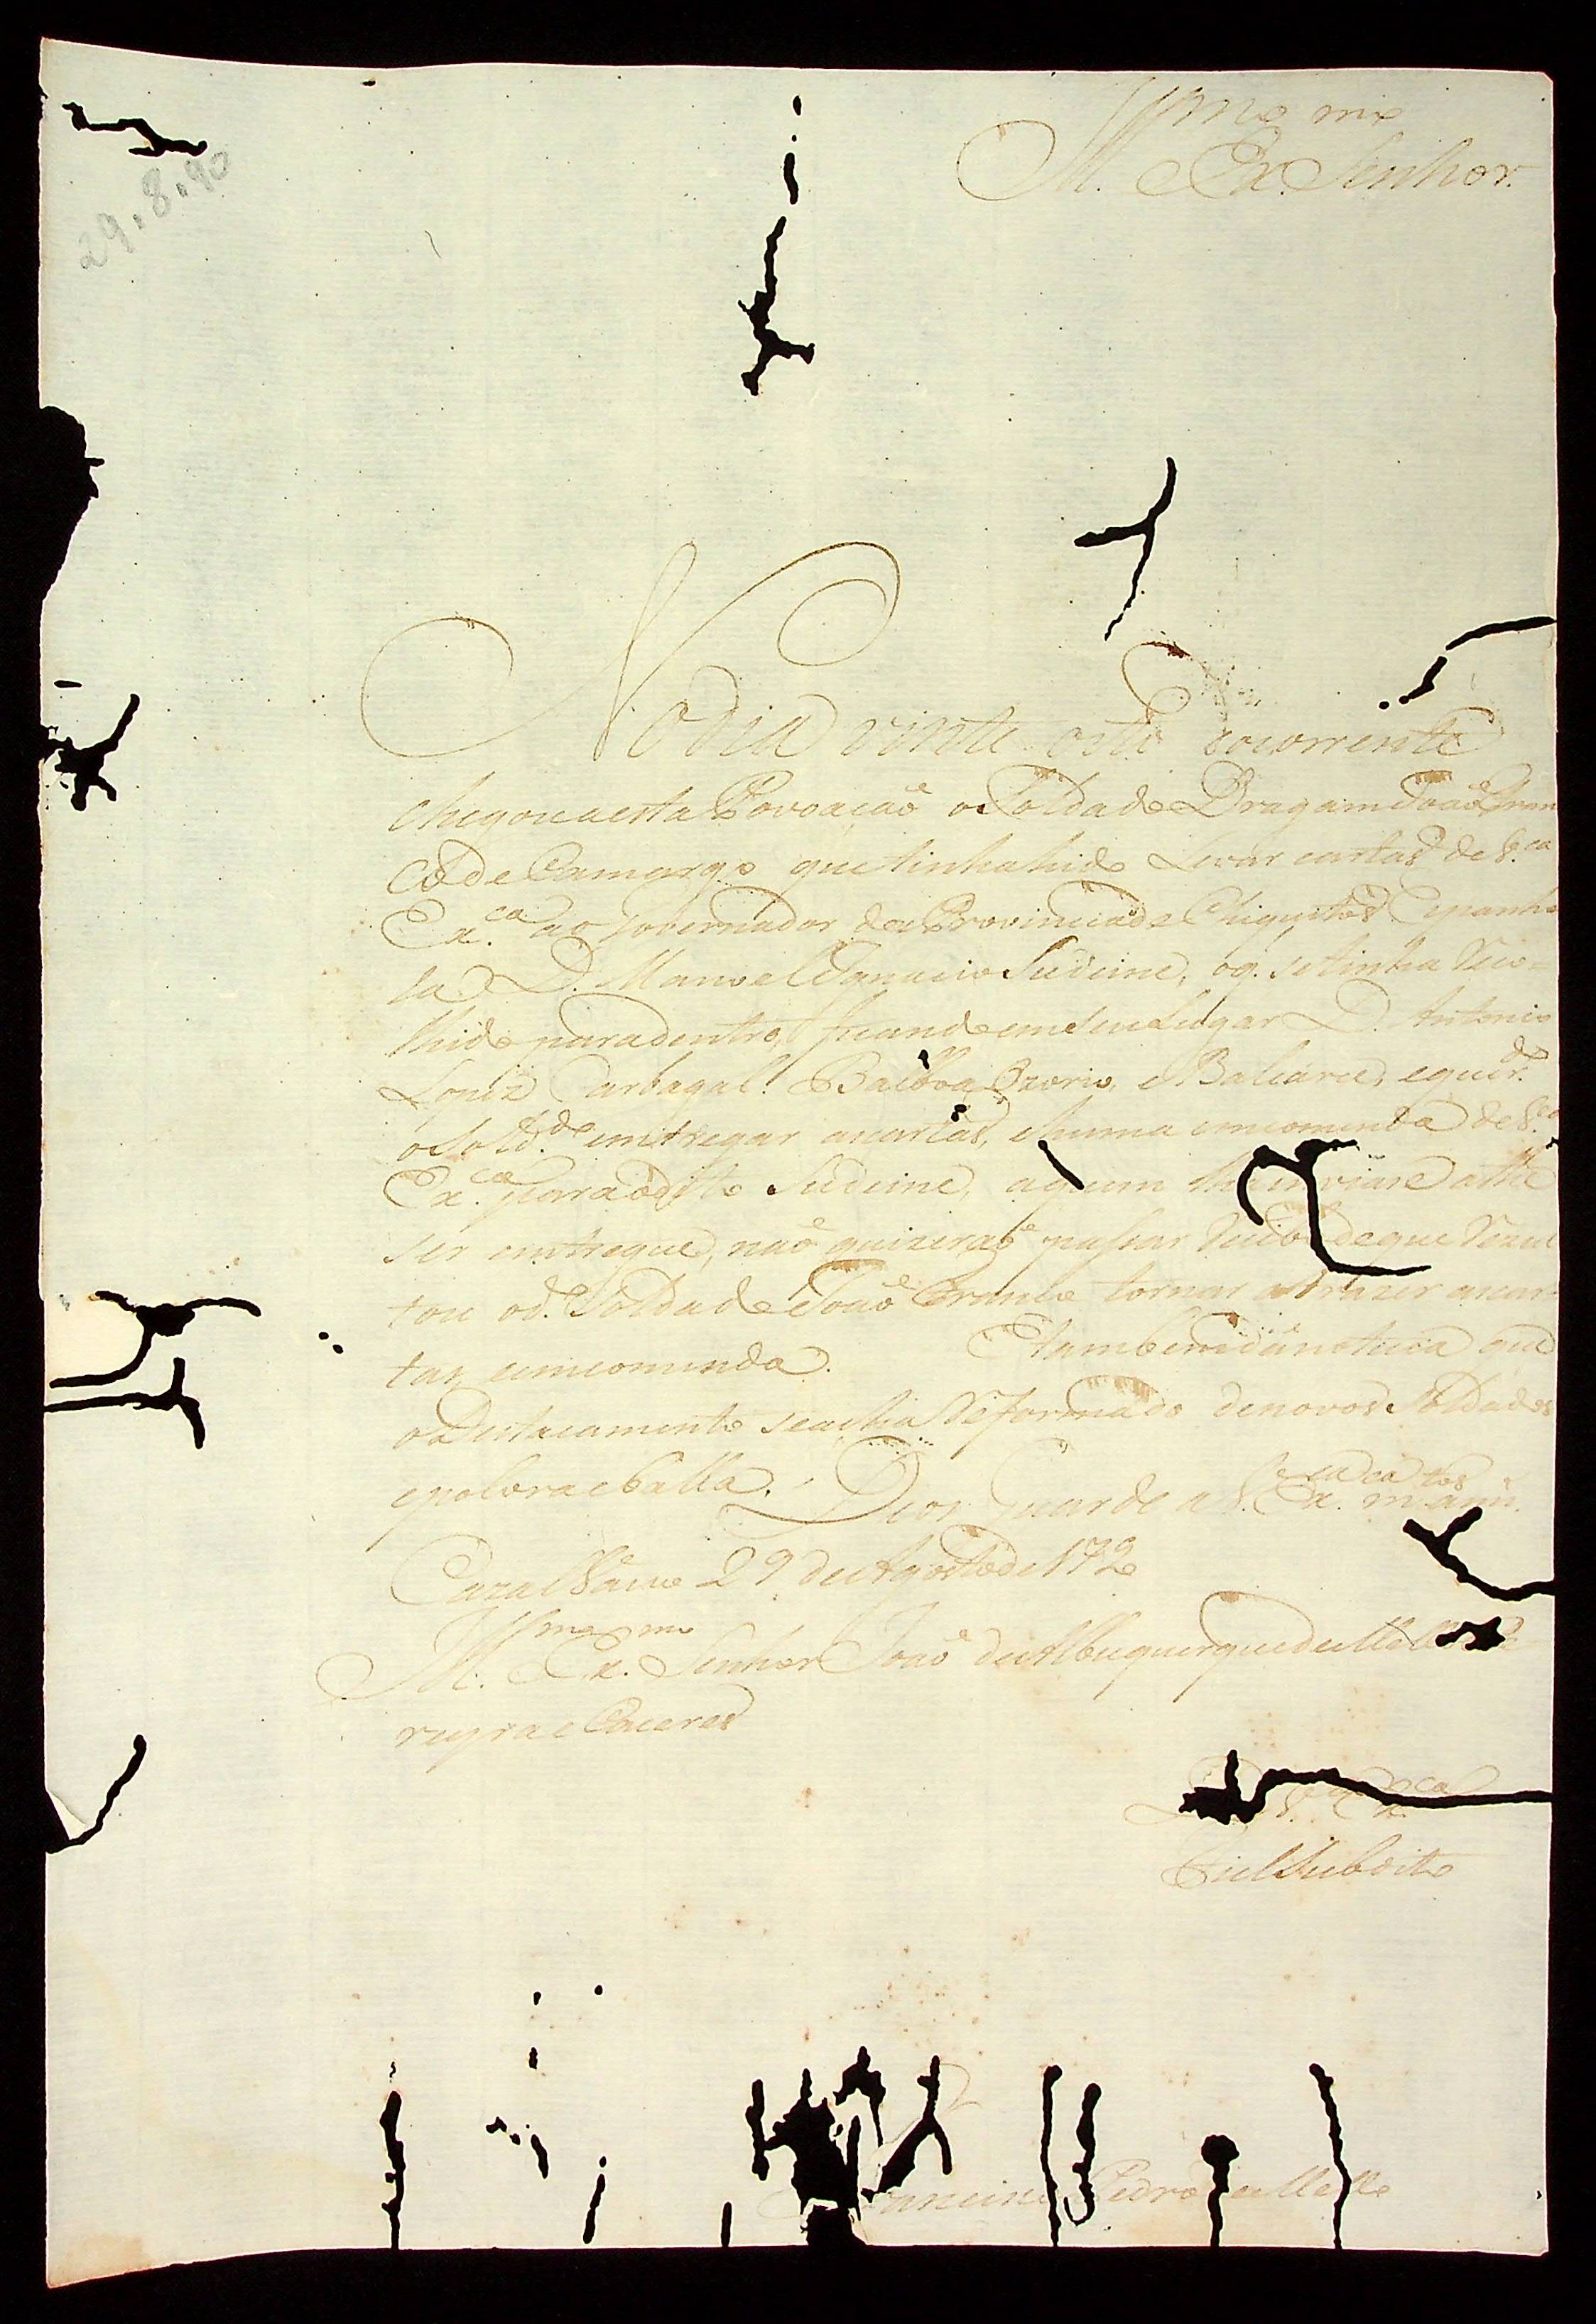 29.8.90
Ill.mo e Ex.mo Senhor.
No dia vinte oito do corrente
chegou a esta Povoação o Soldado Dragam João Fran
co de Camargo que tinha hido Levar cartas de V.ca
Ex.ca ao Governador da Provincia de Chiquitos Espanho
la D. Manoel Ignacio Sudeine, o q. se tinha Reco=
lhido para dentro, ficando em seu Lugar D. Antonio
Lopez Carbagal Balboa Ozorio, e
o Sold.do entregar as cartas, e huma emcomenda de V.ca
Ex.ca para o dito Sudeine, a quem lhe inviase athe
ser entregue, não quizerão pasar Recibo de que Rezul
tou o d.o Soldado João Franco tornar a trazer as car
tas, e emcomenda. E tambem dá noticia que
o Destacamento se acha Reformado de novos Soldados
e polvora e balla. Deos Guarde a V. Ex.ca m.tos ann.
Cazal Vasco 29 de Agosto de 179
Ill.mo Ex.mo Senhor João de Albuquerque de Mello Pe
reyra e Caceres
De V.ca Ex.ca
Fiel Subdito
Francisco Pedro de Mello